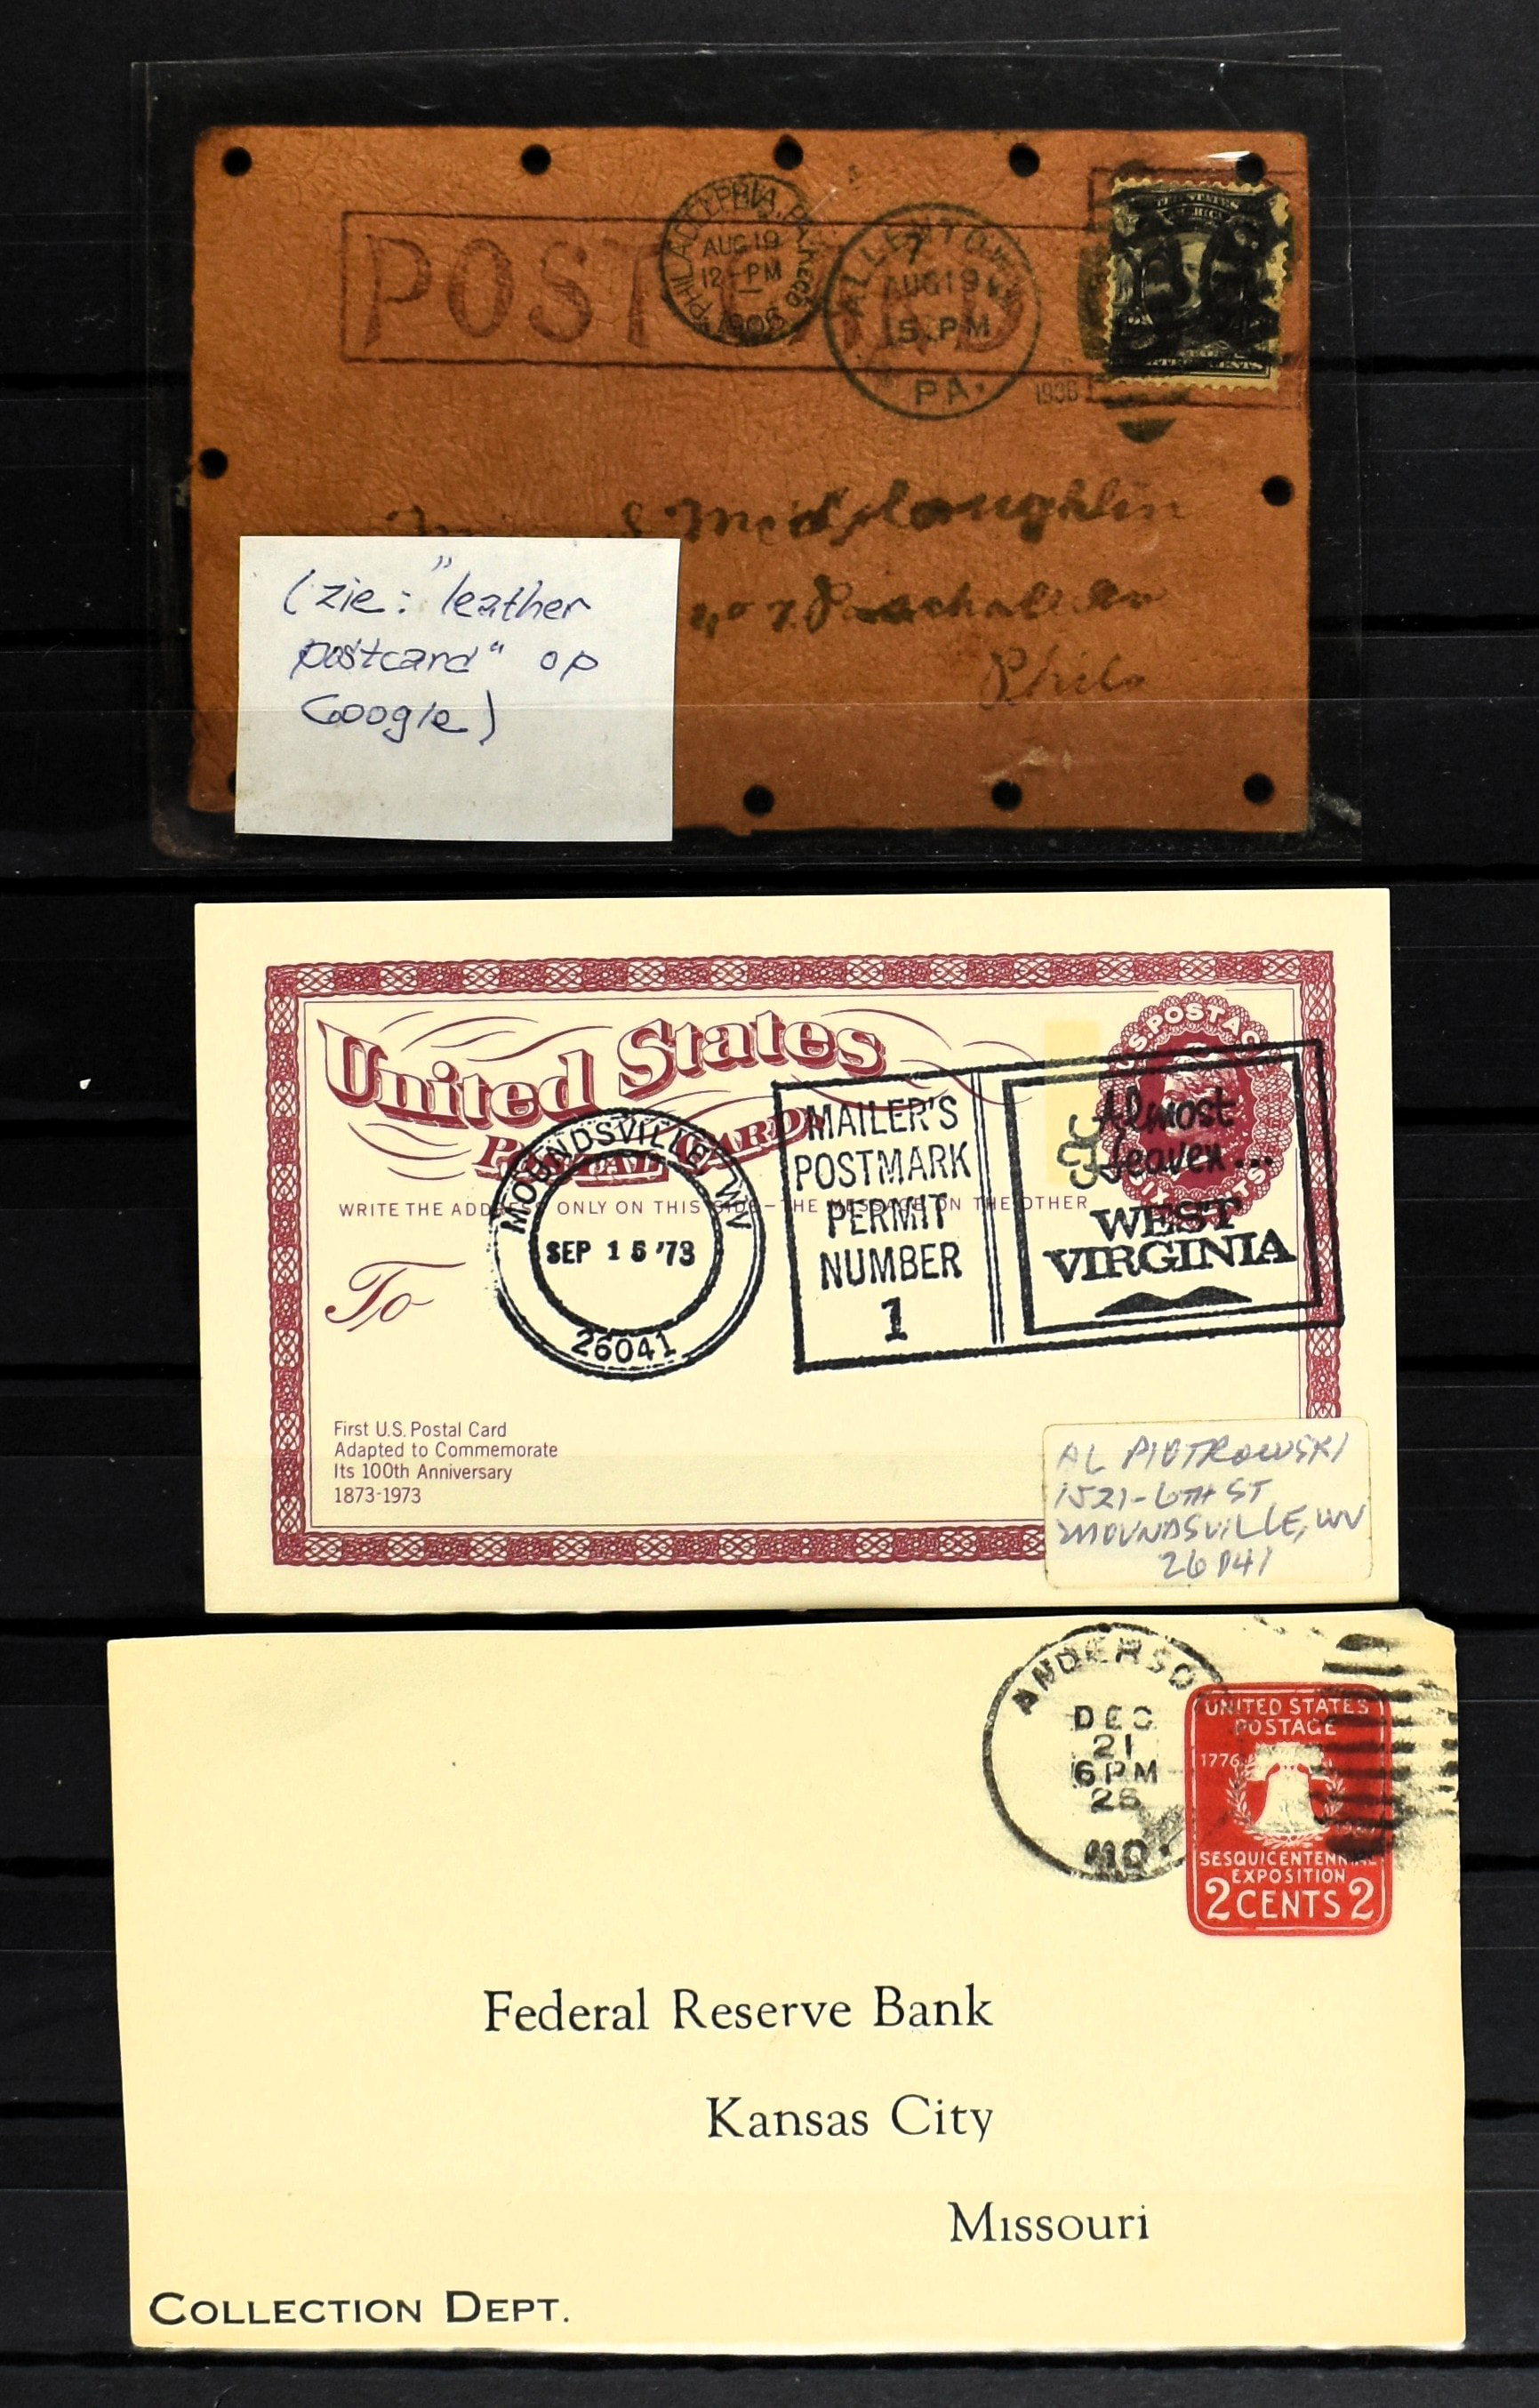 POST CARD
PHILADELPHIA, PA. REC'D
AUG 19
12-PM
1906
ALLENTOWN
7
AUG 19
5.PM
PA.
1906
S McLaughlin
Phila
(zie: "leather
postcard" op
Google)
United States
POSTAL CARD
U.S. POSTAGE
WRITE THE ADDRESS ONLY ON THIS SIDE—THE MESSAGE ON THE OTHER
To
MOUNDSVILLE WV
SEP 15 '73
26041
MAILER'S
POSTMARK
PERMIT
NUMBER
1
Almost
Heaven...
WEST
VIRGINIA
First U.S. Postal Card
Adapted to Commemorate
Its 100th Anniversary
1873-1973
AL PIOTROWSKI
1521-6TH ST
MOUNDSVILLE, WV
26041
ANDERSO
DEC
21
6 PM
26
MO.
UNITED STATES
POSTAGE
1776
SESQUICENTENNIAL
EXPOSITION
2 CENTS 2
Federal Reserve Bank
Kansas City
Missouri
COLLECTION DEPT.